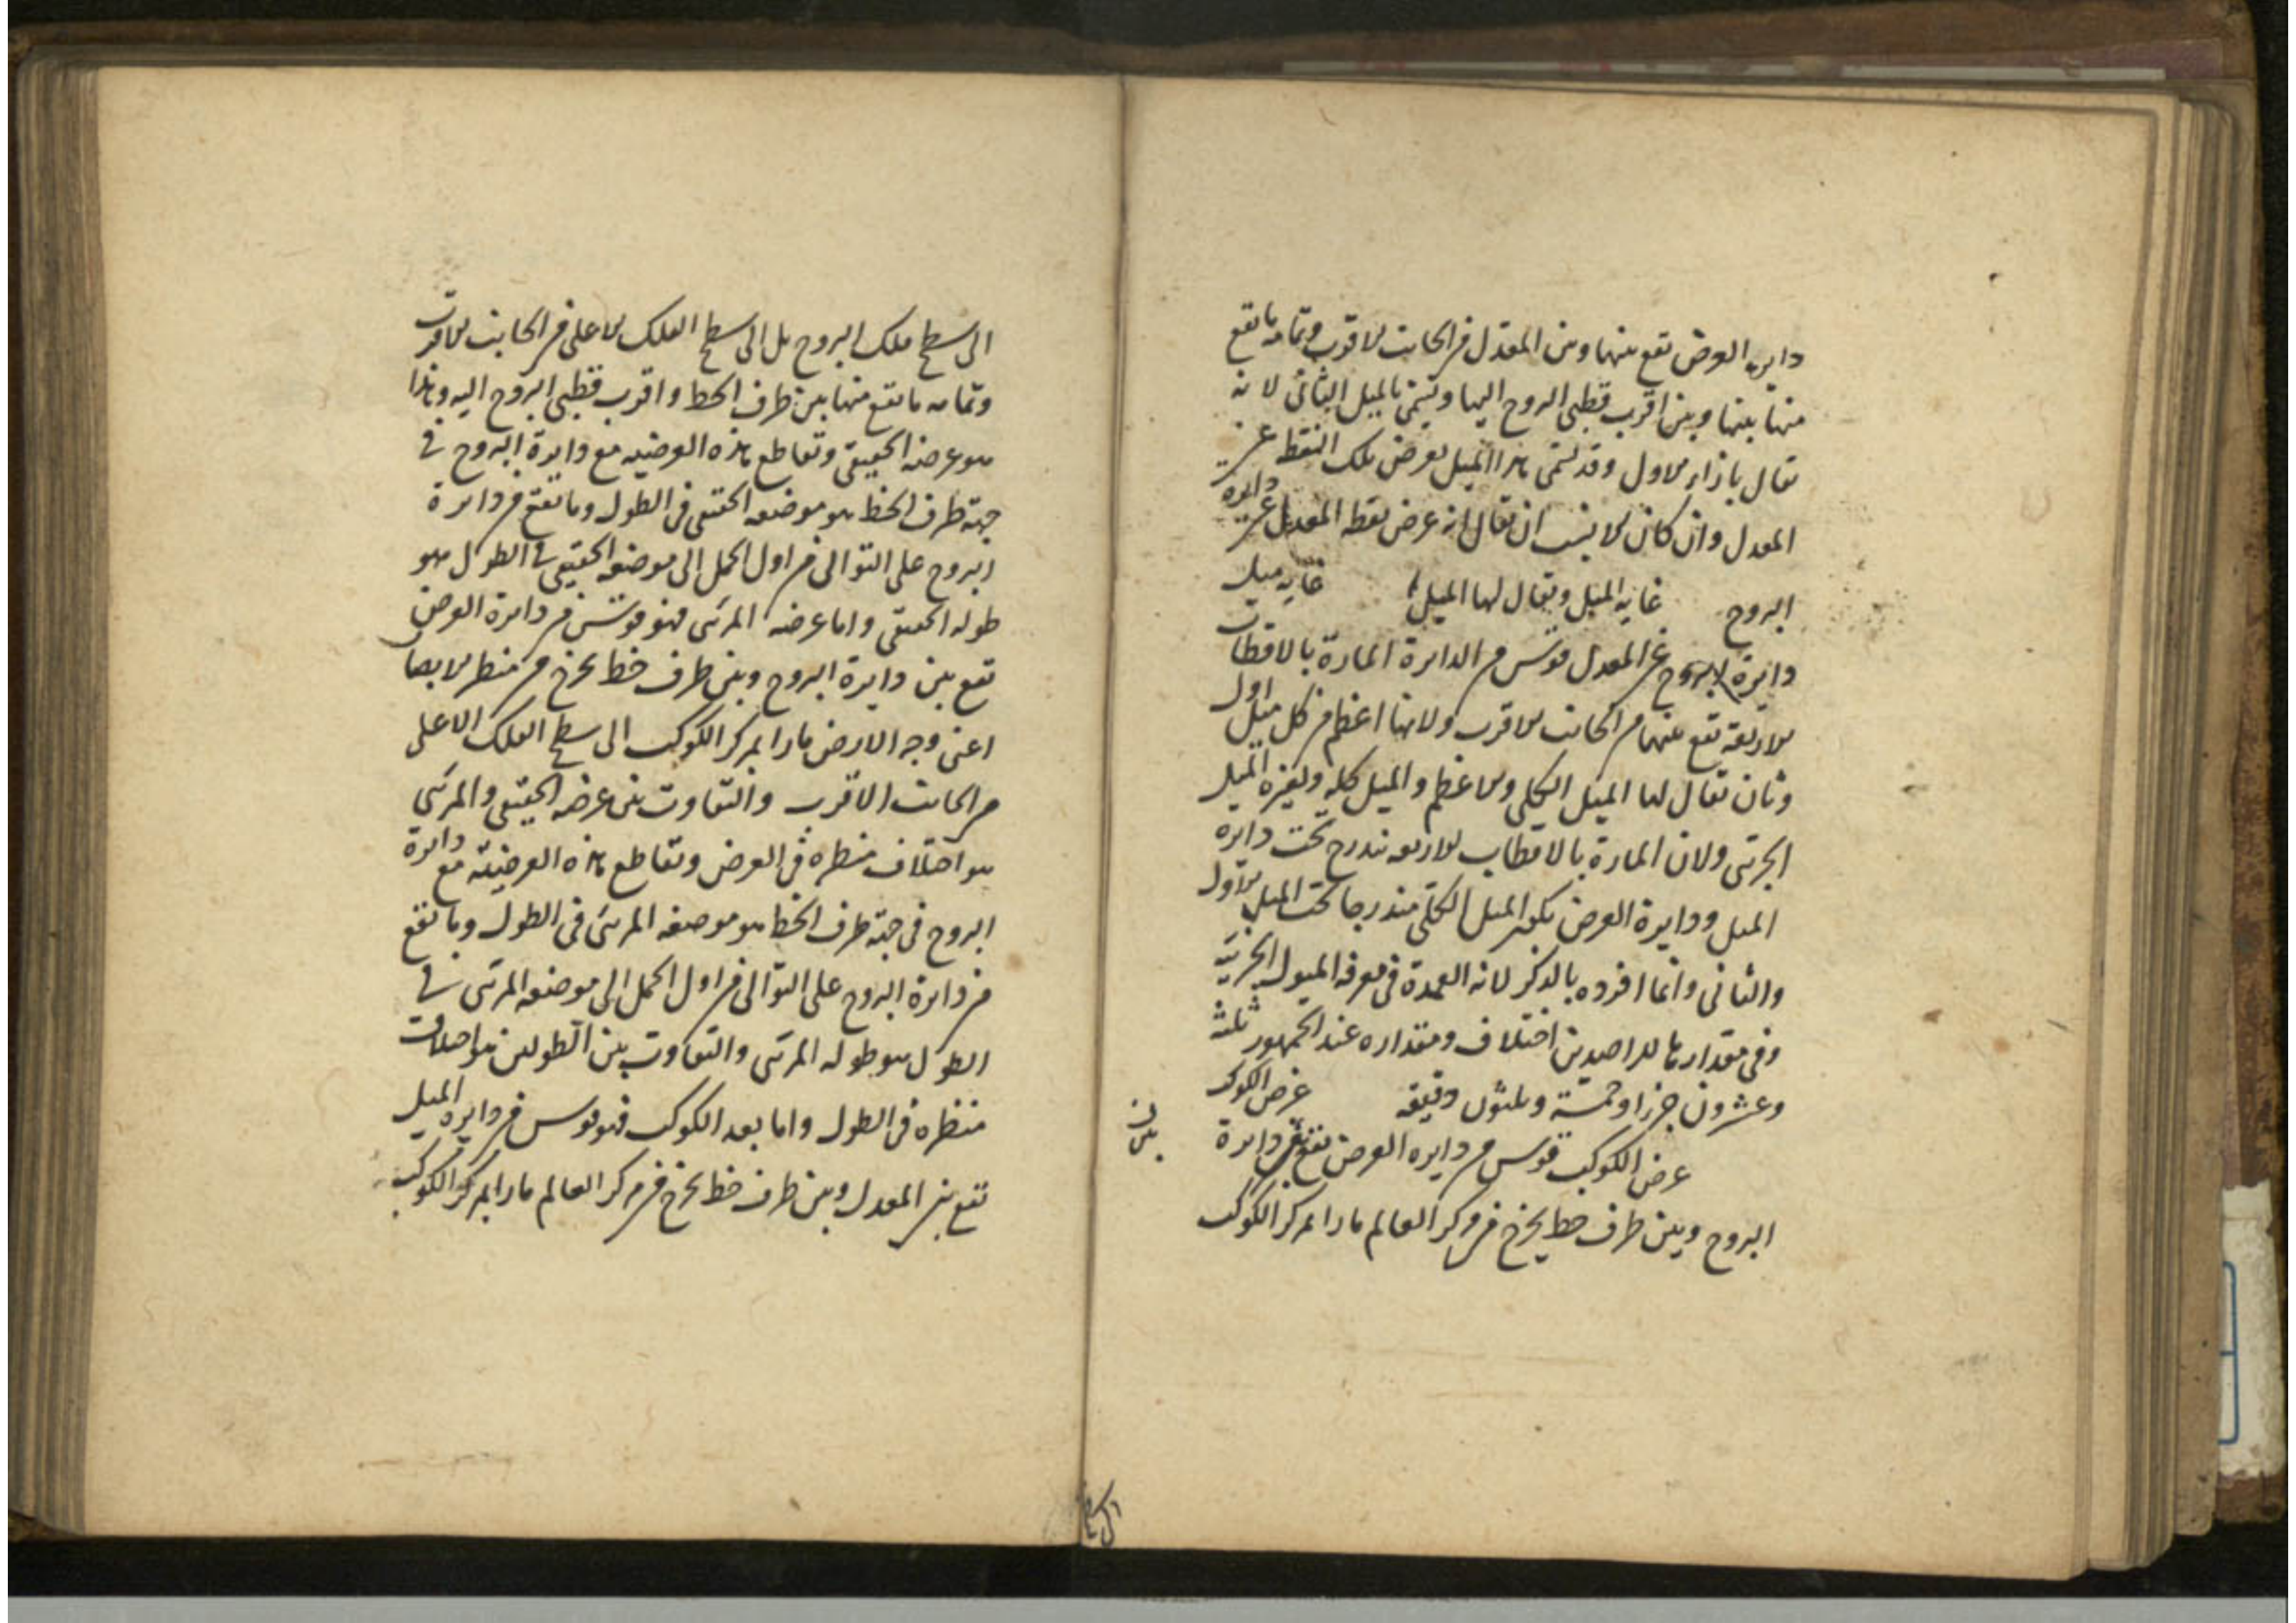 دايره العرض تقع بينها وبين المعدل من الجانب الاقرب وتمامه ما تقع
منها بينها وبين اقرب قطبي البروج اليها وتسمى بالميل الثاني لانه
يقال بازاء الاول وقد تسمى هذا الميل بعرض تلك النقطة عن
المعدل وان كان الانسب ان يقال انه عرض نقطة المعدل عن دايره
البروج غاية الميل ويقال لها الميل غاية ميل
دايرة البروج عن المعدل قوس من الدايرة المارة بالاقطاب
الاربعة تقع بينهما من الجانب الاقرب ولانها اعظم من كل ميل اول
وثان يقال لها الميل الكلي والاعظم والميل كله ولغيره الميل
الجزئي ولان المارة بالاقطاب الاربعه تندرج تحت دايره
الميل ودايرة العرض يكون الميل الكلي مندرجا تحت الميل الاول
والثاني وانما افرده بالذكر لانه العمدة في معرفه الميول الجزئية
وفي مقدارها للراصدين اختلاف ومقداره عند الجمهور ثلثة
وعشرون جزءا وخمسة وثلثون دقيقه عرض الكوكب
عرض الكوكب قوس من دايره العرض تقع بين دايرة
البروج وبين طرف خط يخرج من مركز العالم مارا بمركز الكوكب
بين
الى سطح
الى سطح فلك البروج بل الى سطح الفلك الاعلى من الجانب الاقرب
وتمامه ما تقع منها بين طرف الخط واقرب قطبي البروج اليه وهذا
هو عرضه الحقيقي وتقاطع هذه العرضيه مع دايرة البروج في
جهة طرف الخط هو موضعه الحقيقي في الطول وما تقع من دايرة
البروج على التوالي من اول الحمل الى موضعه الحقيقي في الطول هو
طوله الحقيقي واما عرضه المرئي فهو قوس من دايرة العرض
تقع بين دايرة البروج وبين طرف خط يخرج من منظر الابصار
اعني وجه الارض مارا بمركز الكوكب الى سطح الفلك الاعلى
من الجانب الاقرب والتفاوت بين عرضه الحقيقي والمرئي
هو اختلاف منظره في العرض وتقاطع هذه العرضية مع دايرة
البروج في جهة طرف الخط هو موضعه المرئي في الطول وما تقع
من دايرة البروج على التوالي من اول الحمل الى موضعه المرئي في
الطول هو طوله المرئي والتفاوت بين الطولين هو اختلاف
منظره في الطول واما بعد الكوكب فهو قوس من دايره الميل
تقع بين المعدل وبين طرف خط يخرج من مركز العالم مارا بمركز الكوكب